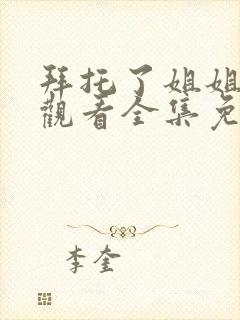 拜托了姐姐
觀看全集免
李奎